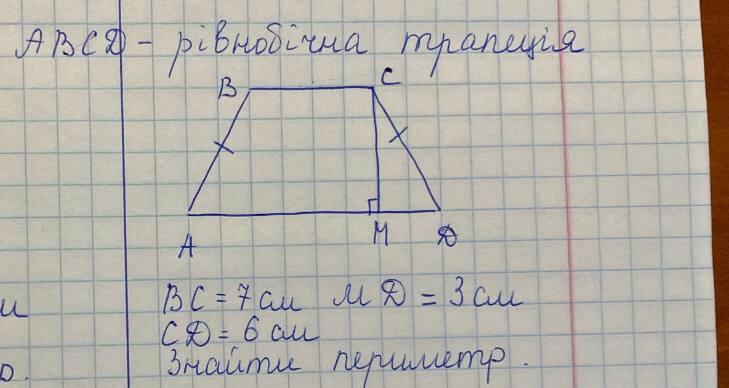 ABCD - рівнобічна трапеція
B C
A M D
и BC = 7 см MD = 3 см
CD = 6 см
о. Знайти периметр.